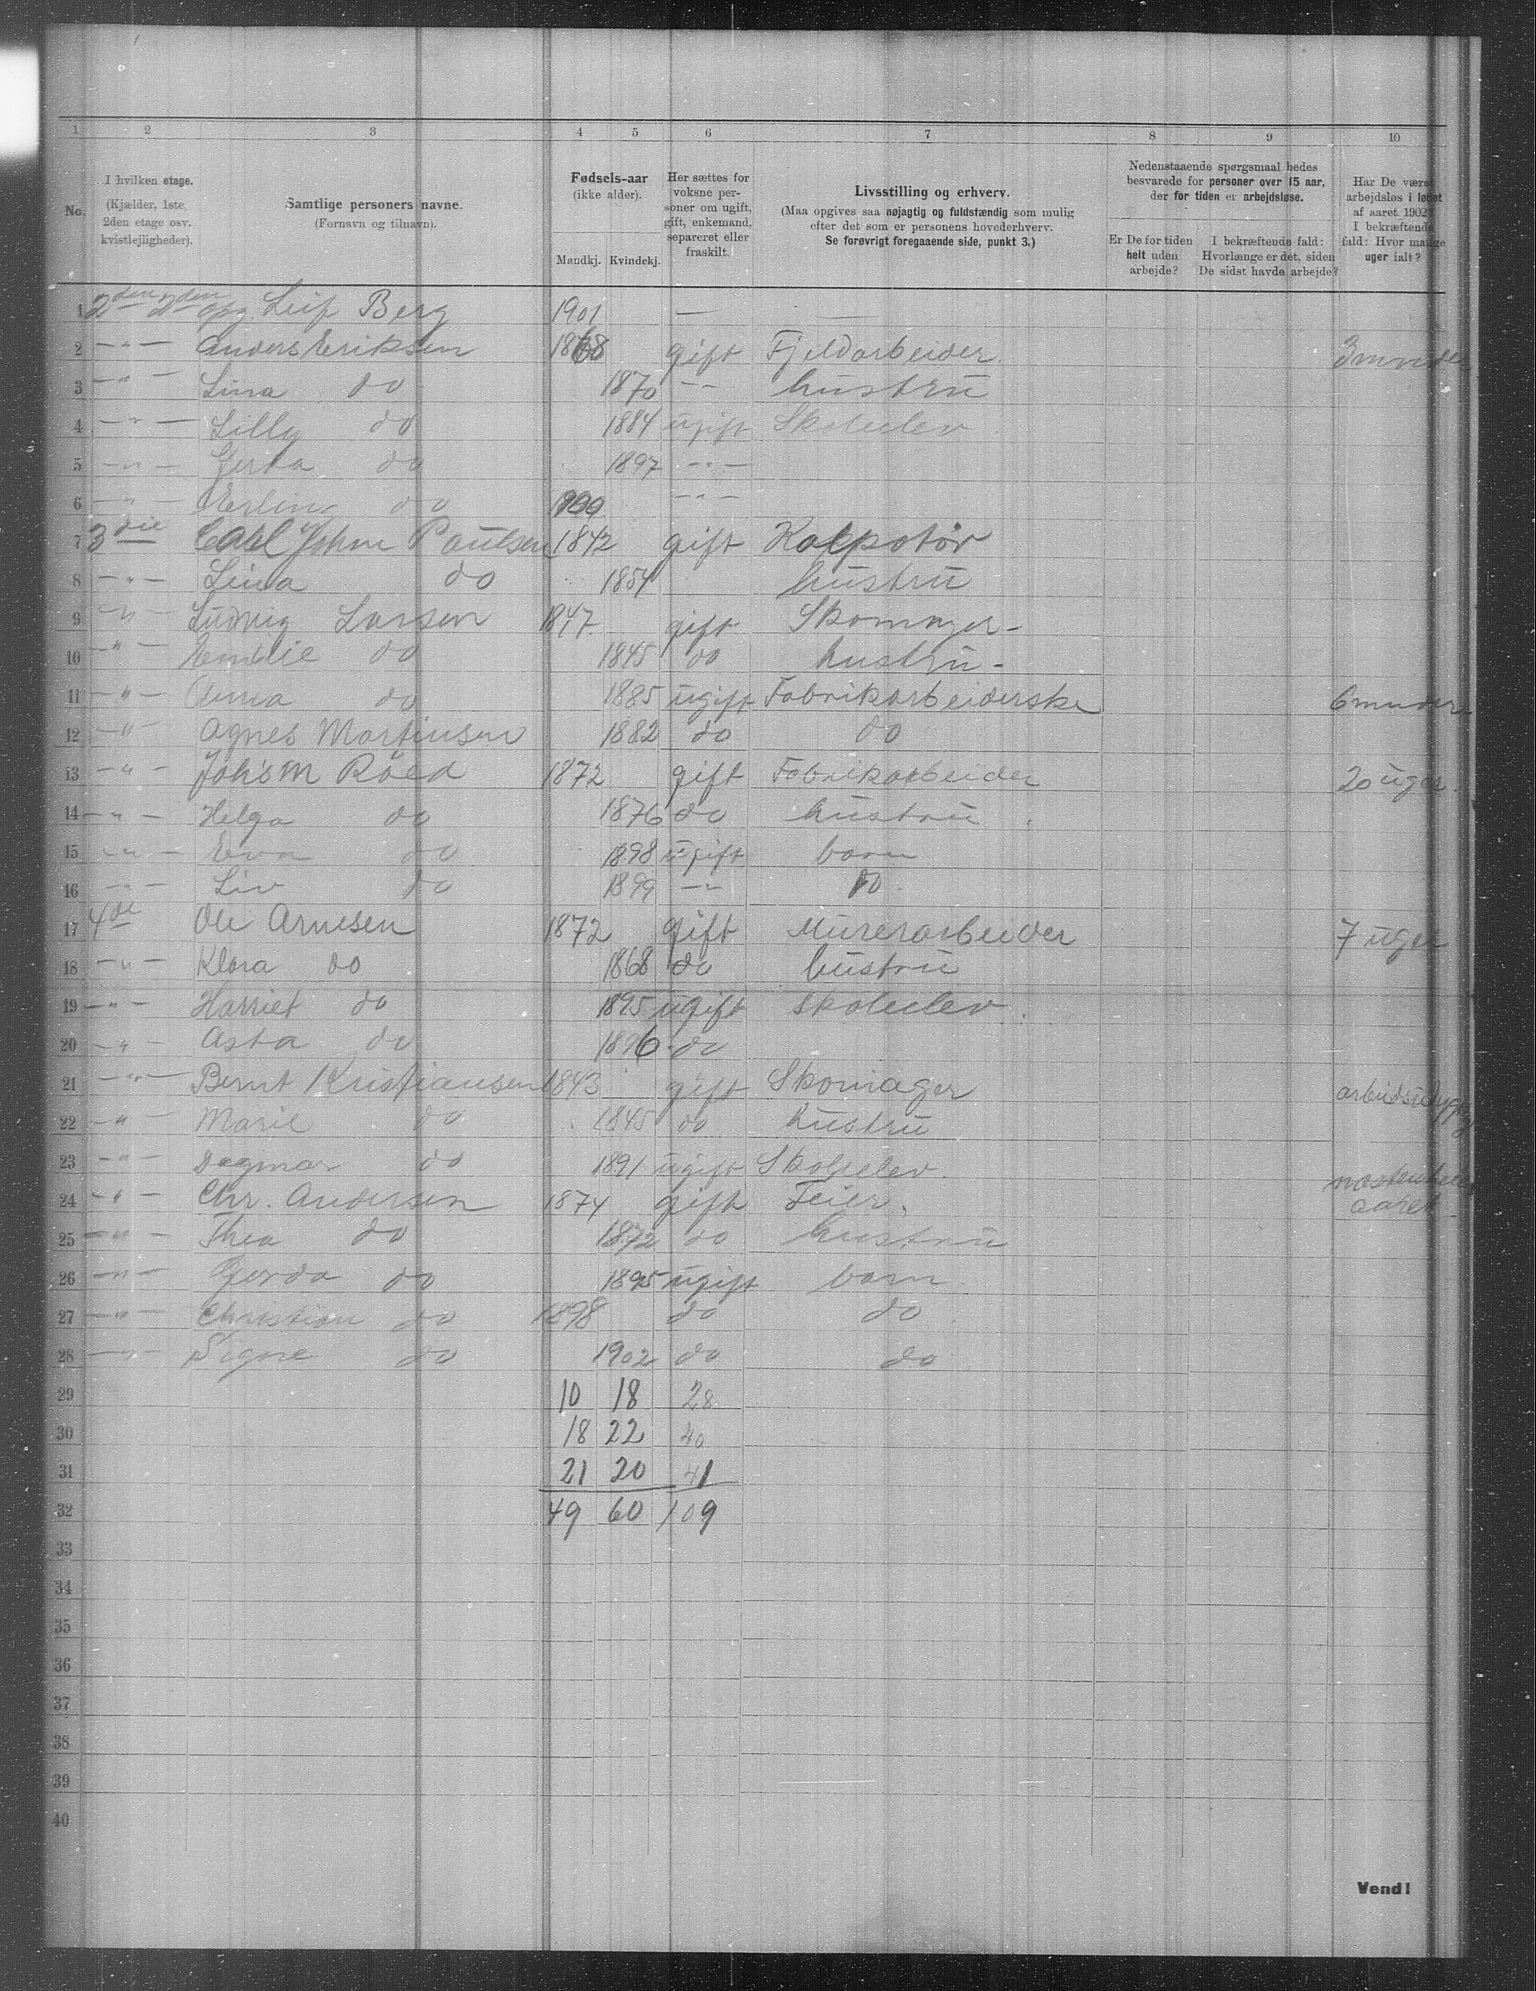 1 2 3 4 5 6 7 8 9 10
No.
I hvilken etage.
(Kjælder, 1ste,
2den etage osv.
kvistlejligheder).
Samtlige personers navne.
(Fornavn og tilnavn).
Fødsels-aar
(ikke alder).
Mandkj. Kvindekj.
Her sættes for
voksne per-
soner om ugift,
gift, enkemand,
separeret eller
fraskilt.
Livsstilling og erhverv.
(Maa opgives saa nøjagtig og fuldstændig som mulig
efter det som er personens hovederhverv.
Se forøvrigt foregaaende side, punkt 3.)
Nedenstaaende spørgsmaal bedes
besvarede for personer over 15 aar,
der for tiden er arbejdsløse.
Er De for tiden
helt uden
arbejde?
I bekræftende fald:
Hvorlænge er det, siden
De sidst havde arbejde?
Har De været
arbejdsløs i løbet
af aaret 1902?
I bekræftende
fald: Hvor mange
uger ialt?
1 2den 2den opg. Leif Berg 1901 — —
2 — " — Anders Eriksen 1868 gift Fjeldarbeider. 3 mnder
3 — " — Lina do 1870 — " — hustru
4 — " — Lilly do 1884 ugift Skoleelev
5 — " — Gerta do 1897 — " —
6 — " — Erling do 1900 — " —
7 3die Carl Johan Paulsen 1842 gift Kolpotör
8 — " — Lina do 1854 hustru
9 — " — Ludvig Larsen 1847 gift Skomager -
10 — " — Emilie do 1845 do hustru -
11 — " — Anna do 1885 ugift Fabrikarbeiderske 6 mnder
12 — " Agnes Martinsen 1882 do do
13 — " — Johs M Röed 1872 gift Fabrikarbeider 20 uger.
14 — " — Helga do 1876 do hustru
15 — " — Eva do 1898 ugift barn
16 — " — Liv do 1899 — " — do
17 4de Ole Arnesen 1872 gift Murerarbeider 7 uger
18 — " — Klara do 1868 do hustru
19 — " — Harriet do 1895 ugift skoleelev.
20 — " — Asta do 1896 do
21 — " — Bernt Kristiansen 1843 gift Skomager arbeidsudygtig
22 — " Marie do 1845 do hustru
23 — " — Dagmar do 1891 ugift Skoleelev
24 — " — Chr. Andersen 1874 gift Feier. næsten hele
aaret.
25 — " — Thea do 1872 do hustru
26 — " — Gerda do 1895 ugift barn
27 — " — Christian do 1898 do do
28 — " — Signe do 1902 do do
29 10 18 28
30 18 22 40
31 21 20 41
32 49 60 109
33
34
35
36
37
38
39
40
Vend!